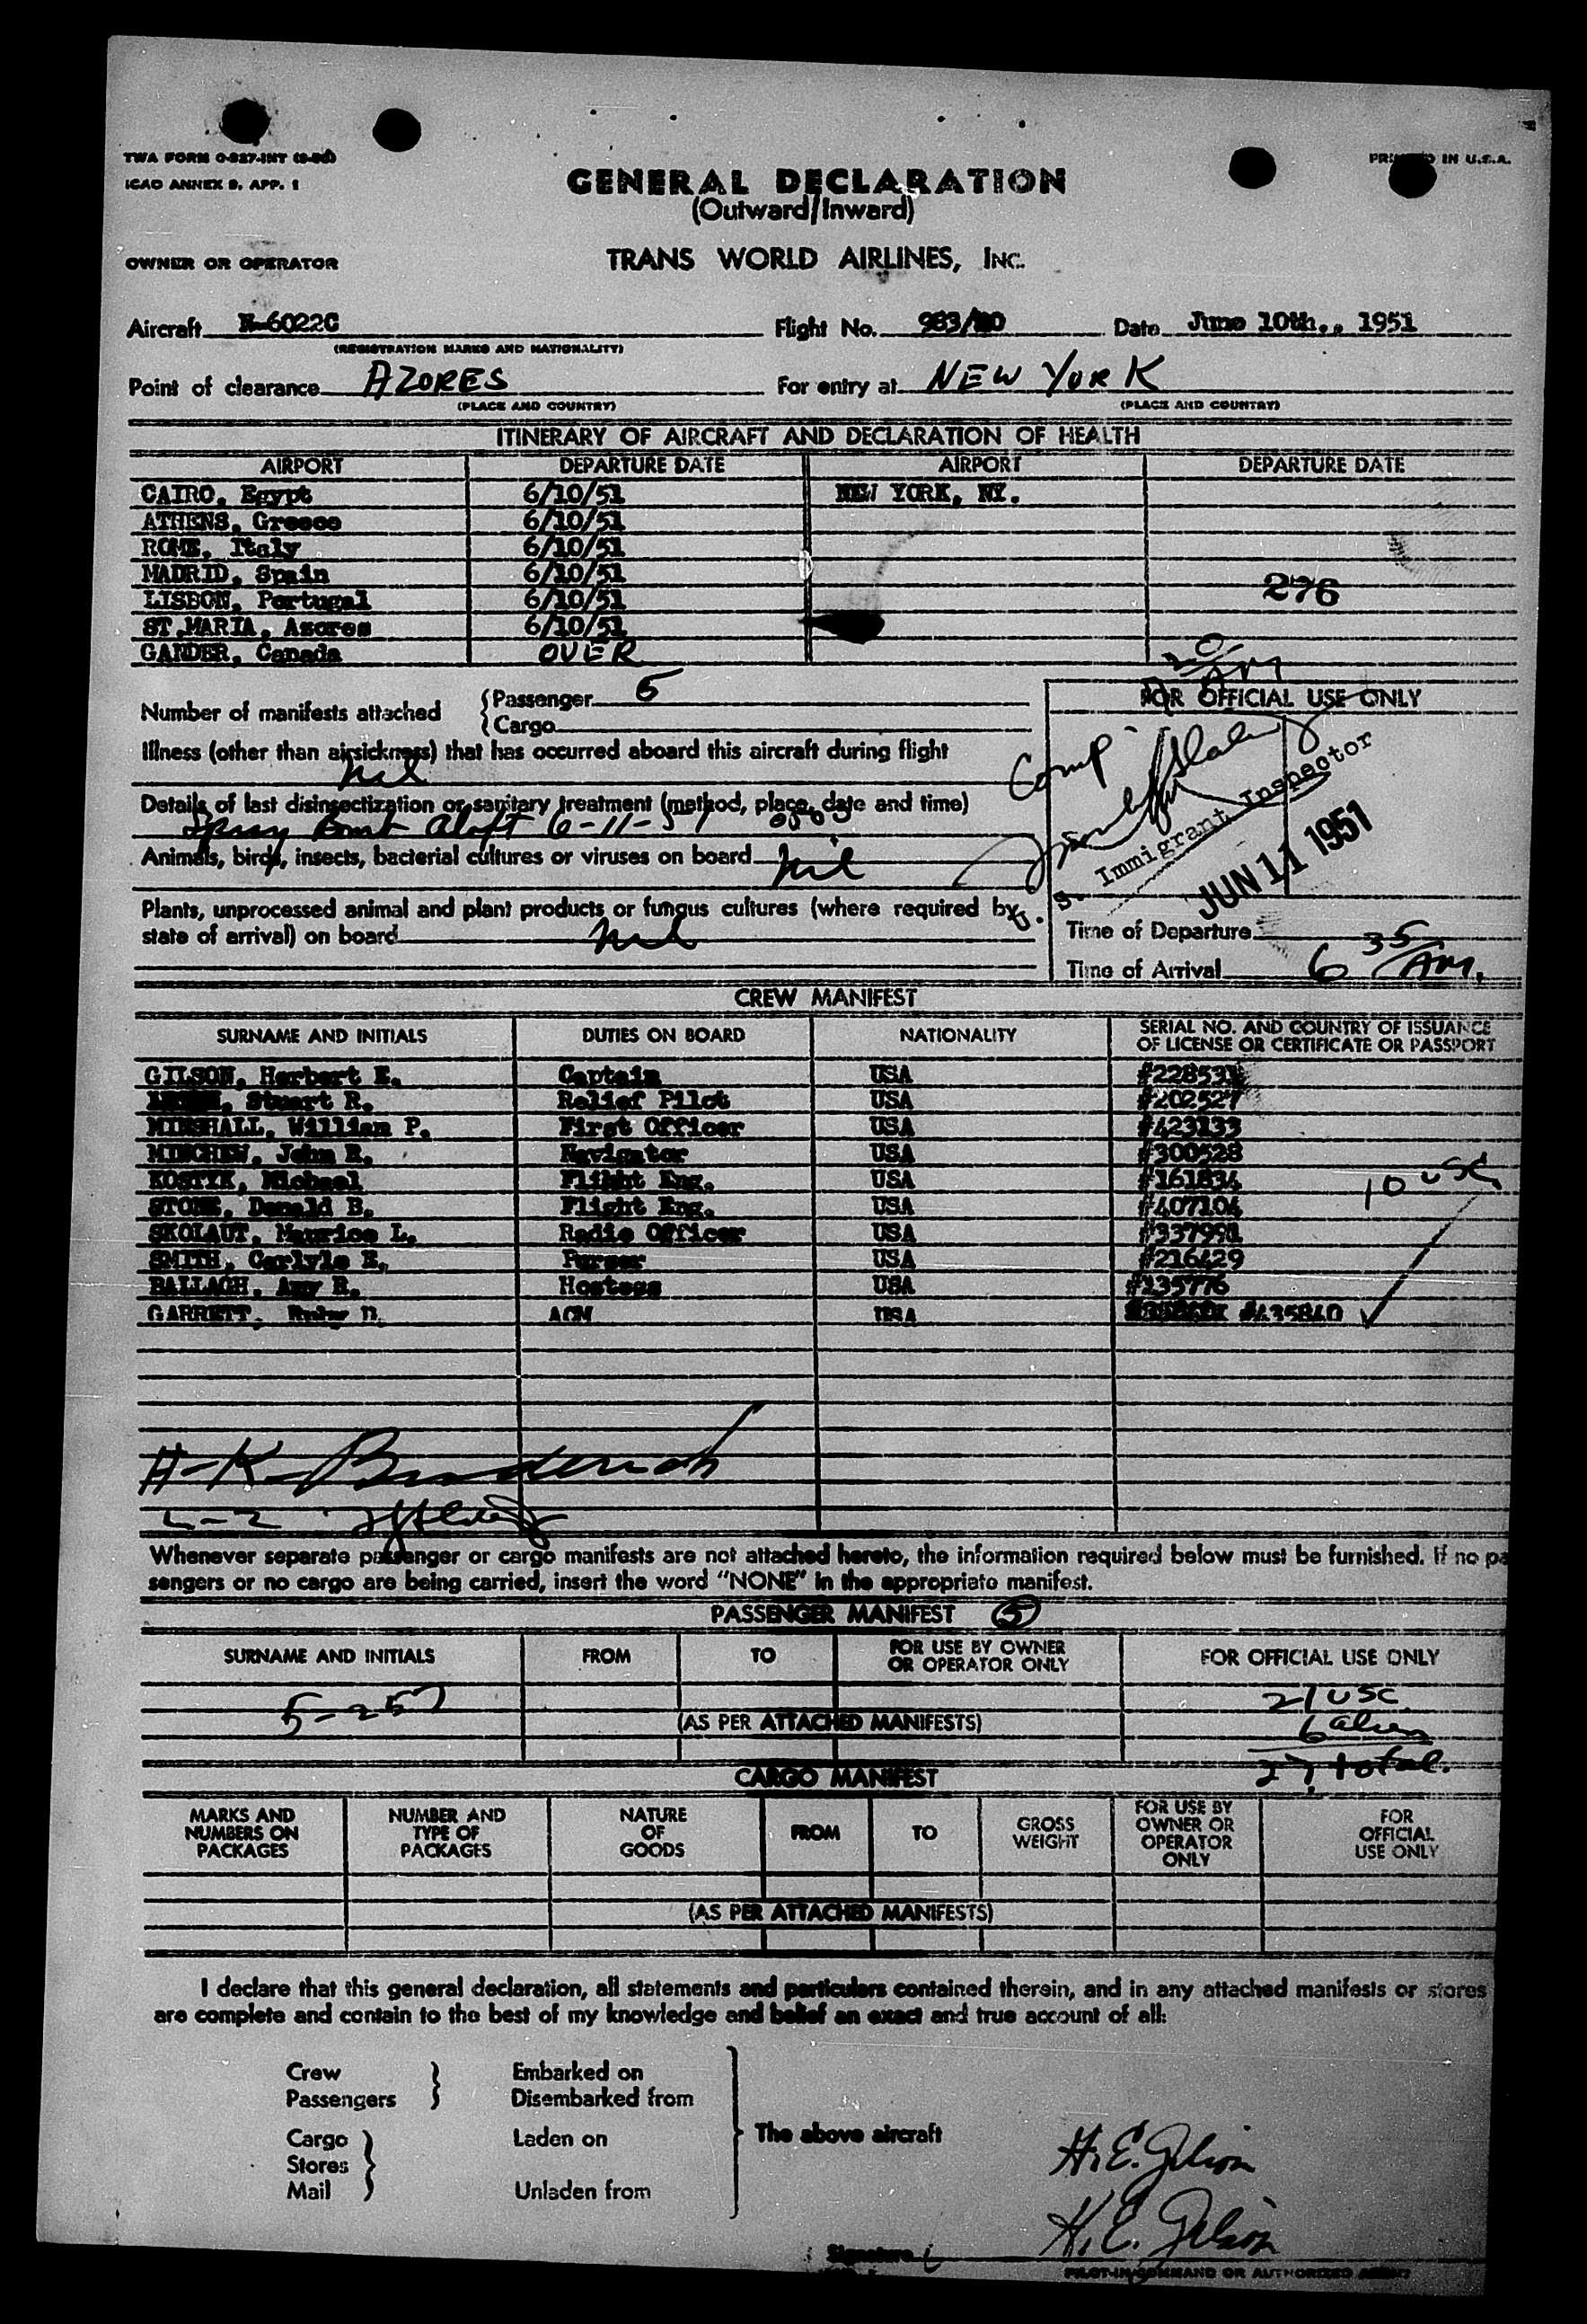 TWA FORM O-827-INT
ICAO ANNEX 9, APP. 1
PRINTED IN U.S.A.
GENERAL DECLARATION
(Outward/Inward)
OWNER OR OPERATOR TRANS WORLD AIRLINES, INC.
Aircraft N-6022C Flight No. 983/ Date June 10th., 1951
(REGISTRATION MARKS AND NATIONALITY)
Point of clearance AZORES For entry at NEW YORK
(PLACE AND COUNTRY) (PLACE AND COUNTRY)
ITINERARY OF AIRCRAFT AND DECLARATION OF HEALTH
AIRPORT DEPARTURE DATE AIRPORT DEPARTURE DATE
CAIRO, Egypt 6/10/51 NEW YORK, NY.
ATHENS, Greece 6/10/51
ROME, Italy 6/10/51
MADRID, Spain 6/10/51
LISBON, Portugal 6/10/51 276
ST.MARIA, Azores 6/10/51
GANDER, Canada OVER
Number of manifests attached Passenger 5
Cargo
FOR OFFICIAL USE ONLY
Illness (other than airsickness) that has occurred aboard this aircraft during flight
Nil
Comp
Details of last disinsectization or sanitary treatment (method, place, date and time)
Spray Bomb Aloft 6-11-51
U. S. Immigrant Inspector
JUN 11 1951
Animals, birds, insects, bacterial cultures or viruses on board Nil
Plants, unprocessed animal and plant products or fungus cultures (where required by
state of arrival) on board Nil
Time of Departure
Time of Arrival 6 35 AM.
CREW MANIFEST
SURNAME AND INITIALS DUTIES ON BOARD NATIONALITY SERIAL NO. AND COUNTRY OF ISSUANCE
OF LICENSE OR CERTIFICATE OR PASSPORT
GILSON, Herbert E. Captain USA
Stuart R. Relief Pilot USA #202527
MINSHALL, William P. First Officer USA #423133
MINCHEW, John E. Navigator USA #300528
KOSTYK, Michael Flight Eng. USA #161834
10 USC
STONE, Donald B. Flight Eng. USA #407104
SKOLAUT, Maurice L. Radio Officer USA
SMITH, Carlyle E. Purser USA #216429
BALLAGH, Amy R. Hostess USA #235776
GARRETT, Ruby D. ACM USA #435840
H-K-
2-2
Whenever separate passenger or cargo manifests are not attached hereto, the information required below must be furnished. If no pa
sengers or no cargo are being carried, insert the word "NONE" in the appropriate manifest.
PASSENGER MANIFEST 5
SURNAME AND INITIALS FROM TO FOR USE BY OWNER
OR OPERATOR ONLY FOR OFFICIAL USE ONLY
5-257 21 USC
(AS PER ATTACHED MANIFESTS) 6 alien
27 total.
CARGO MANIFEST
MARKS AND
NUMBERS ON
PACKAGES
NUMBER AND
TYPE OF
PACKAGES
NATURE
OF
GOODS
FROM
TO
GROSS
WEIGHT
FOR USE BY
OWNER OR
OPERATOR
ONLY
FOR
OFFICIAL
USE ONLY
(AS PER ATTACHED MANIFESTS)
I declare that this general declaration, all statements and particulars contained therein, and in any attached manifests or stores
are complete and contain to the best of my knowledge and belief an exact and true account of all:
Crew Embarked on
Passengers Disembarked from
The above aircraft
Cargo Laden on
Stores
Mail Unladen from
H. E. Gilson
H. E. Gilson
Signature
PILOT-IN-COMMAND OR AUTHORIZED AGENT